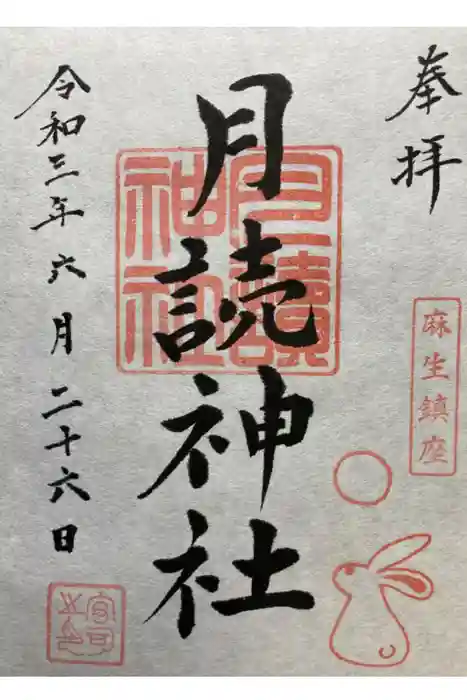 奉拝
麻生鎮座
月読神社
月讀神社
令和三年六月二十六日
宮司之印